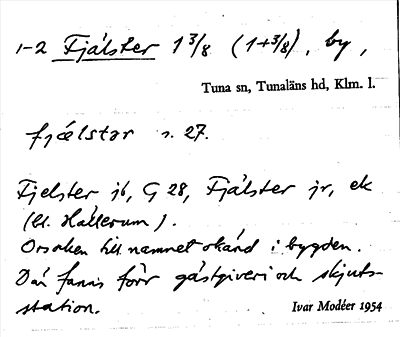 1-2 Fjälster 1 3/8 (1+3/8), by,
Tuna sn, Tunaläns hd, Klm. l.
fjælstər s. 27.
Fjelster jb, G 28, Fjälster jr, ek
(bl. Hällerum).
Orsaken till namnet okänd i bygden.
Där fanns förr gästgiveri och skjuts-
station.
Ivar Modéer 1954